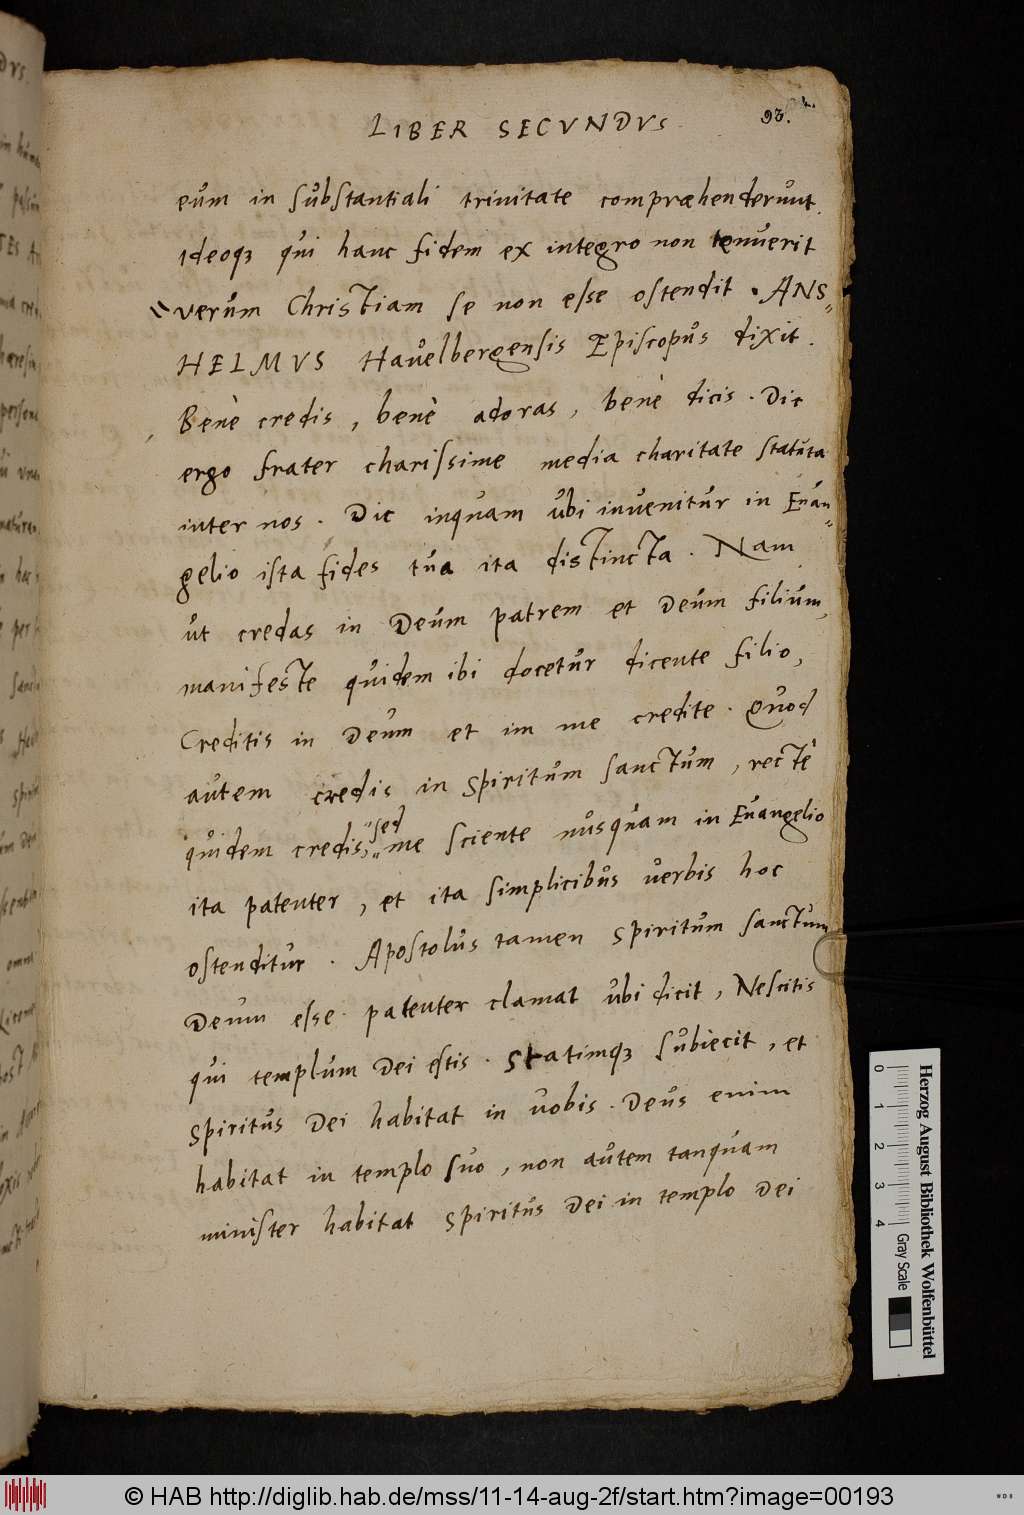 LIBER SECVNDVS
93.
eum in substantiali trinitate compræhenderunt.
Ideoqꝫ qui hanc fidem ex integro non tenuerit
verum Christiam se non esse ostendit . ANS⸗
HELMVS Hauelbergensis Episcopus dixit.
Benè credis, benè adoras, benè dicis. Dic
ergo frater charissime media charitate statuta
inter nos. Dic inquam ubi invenitur in Euan⸗
gelio ista fides tua ita distincta. Nam
ut credas in Deum patrem et Deum filium,
manifeste quidem ibi docetur dicente filio,
Creditis in Deum et im me credite. Quod
autem credis in Spiritum sanctum, rectè
quidem credis, sed me sciente nusquam in Euangelio
ita patenter, et ita simplicibus verbis hoc
ostenditur. Apostolus tamen Spiritum sanctum
Deum esse patenter clamat ubi dicit, Nescitis
qui templum Dei estis. Statimqꝫ subiecit, et
Spiritus Dei habitat in vobis. Deus enim
habitat in templo suo, non autem tanquam
minister habitat Spiritus Dei in templo Dei
0 1 2 3 4
Gray Scale
Herzog August Bibliothek Wolfenbüttel
© HAB http://diglib.hab.de/mss/11-14-aug-2f/start.htm?image=00193